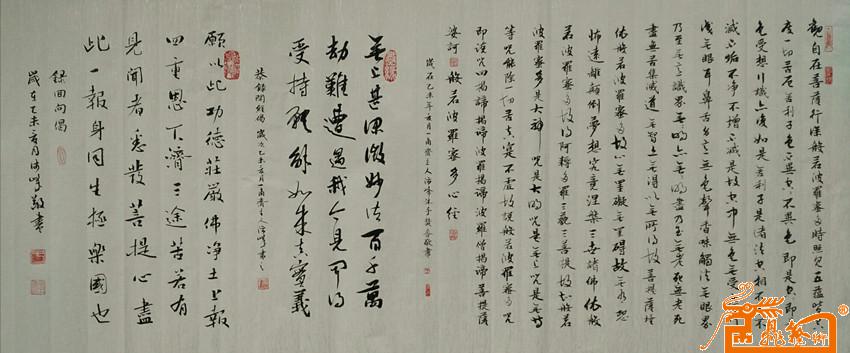 觀自在菩薩行深般若波羅蜜多時照見五蘊皆空
度一切苦厄舍利子色不異空空不異色色即是空空即是
色受想行識亦復如是舍利子是諸法空相不生不
滅不垢不淨不增不減是故空中無色無受想行
識無眼耳鼻舌身意無色聲香味觸法無眼界
乃至無意識界無無明亦無無明盡乃至無老死亦無老死
盡無苦集滅道無智亦無得以無所得故菩提薩埵
依般若波羅蜜多故心無罣礙無罣礙故無有恐
怖遠離顛倒夢想究竟涅槃三世諸佛依般
若波羅蜜多故得阿耨多羅三藐三菩提故知般若
波羅蜜多是大神咒是大明咒是無上咒是無等
等咒能除一切苦真實不虛故說般若波羅蜜多咒
即說咒曰揭諦揭諦波羅揭諦波羅僧揭諦菩提薩
婆訶 般若波羅蜜多心經
歲在乙未年
無上甚深微妙法百千萬
劫難遭遇我今見聞得
受持願解如來真實義
恭錄開經偈 歲次乙未
願以此功德莊嚴佛淨土上報
四重恩下濟三途苦若有
見聞者悉發菩提心盡
此一報身同生極樂國也
錄回向偈
歲在乙未